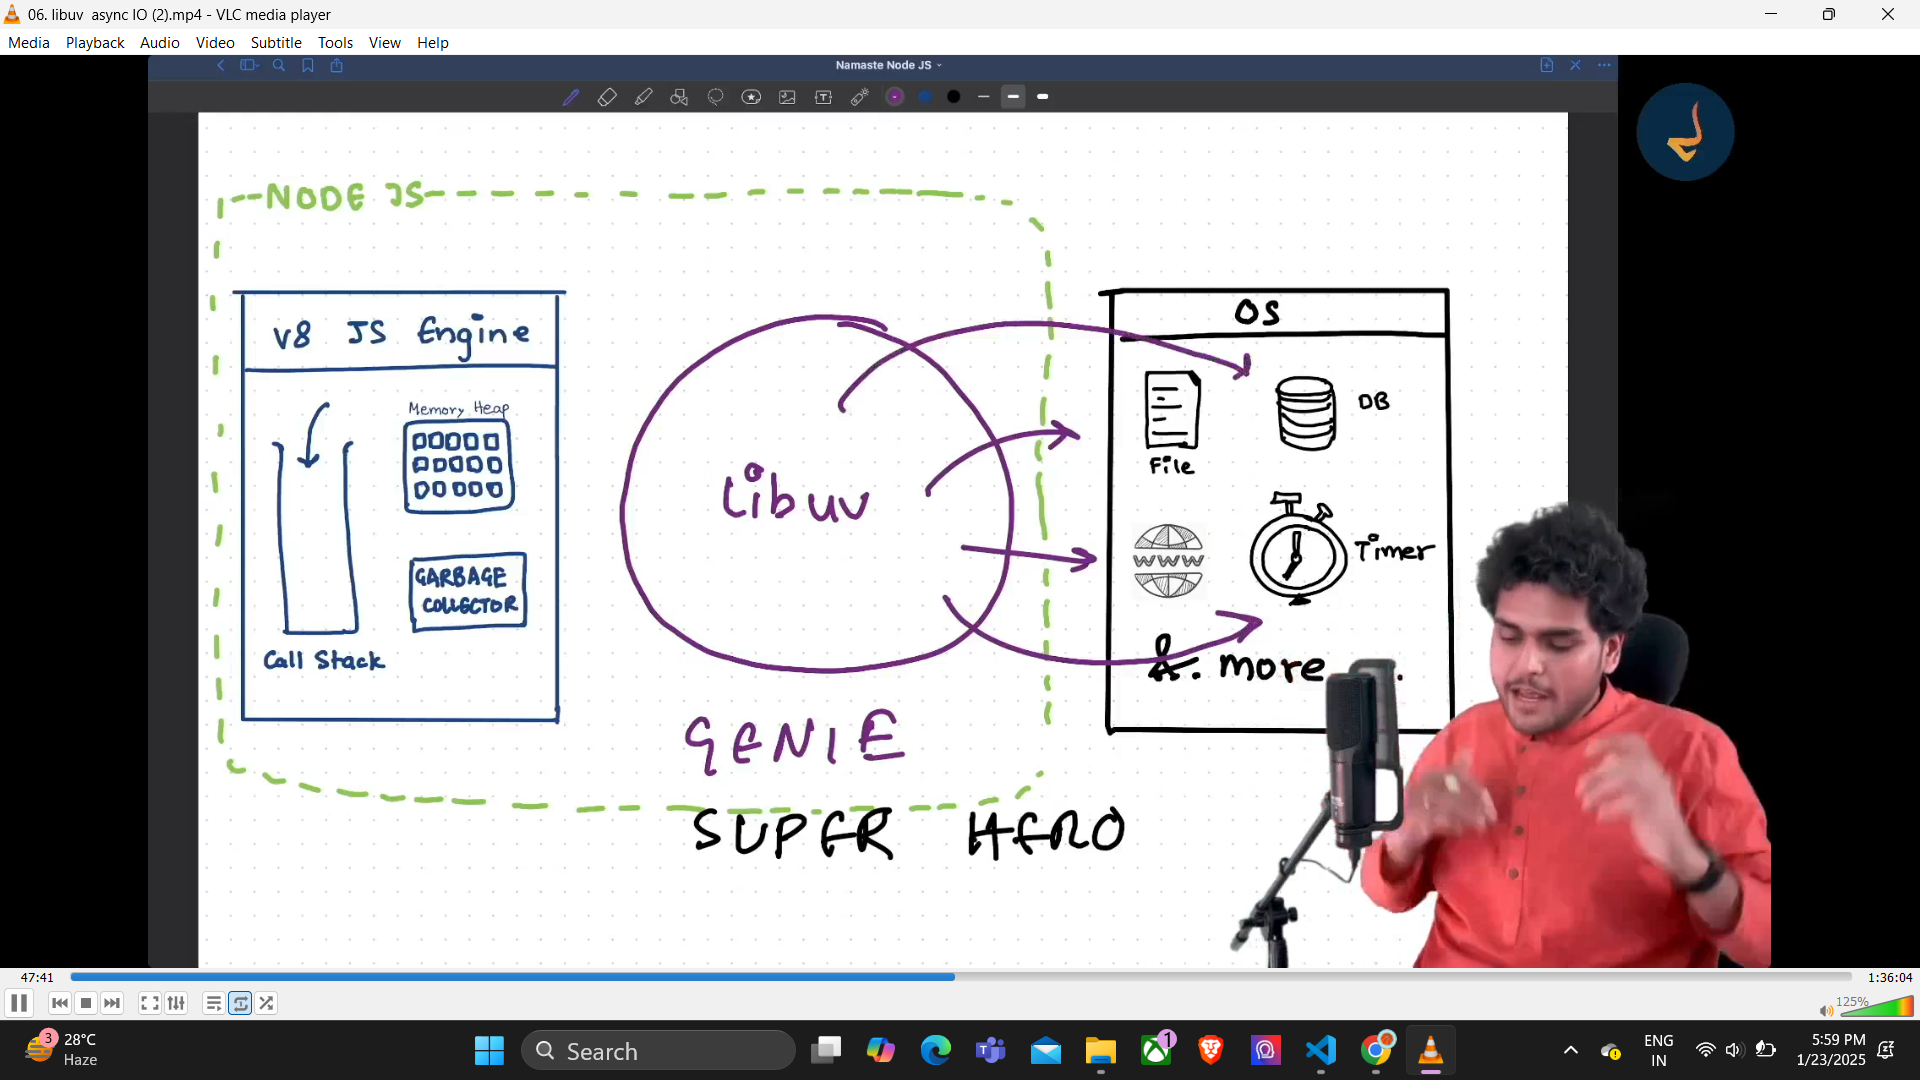 06. libuv  async IO (2).mp4 - VLC media player
Media Playback Audio Video Subtitle Tools View Help
Namaste Node JS
NODE JS
V8 JS Engine
Memory Heap
GARBAGE
COLLECTOR
Call Stack
Libuv
GENIE
SUPER HERO
OS
File
DB
WWW
Timer
&. more ..
47:41
1:36:04
125%
3
28°C
Haze
Search
1
ENG
IN
5:59 PM
1/23/2025